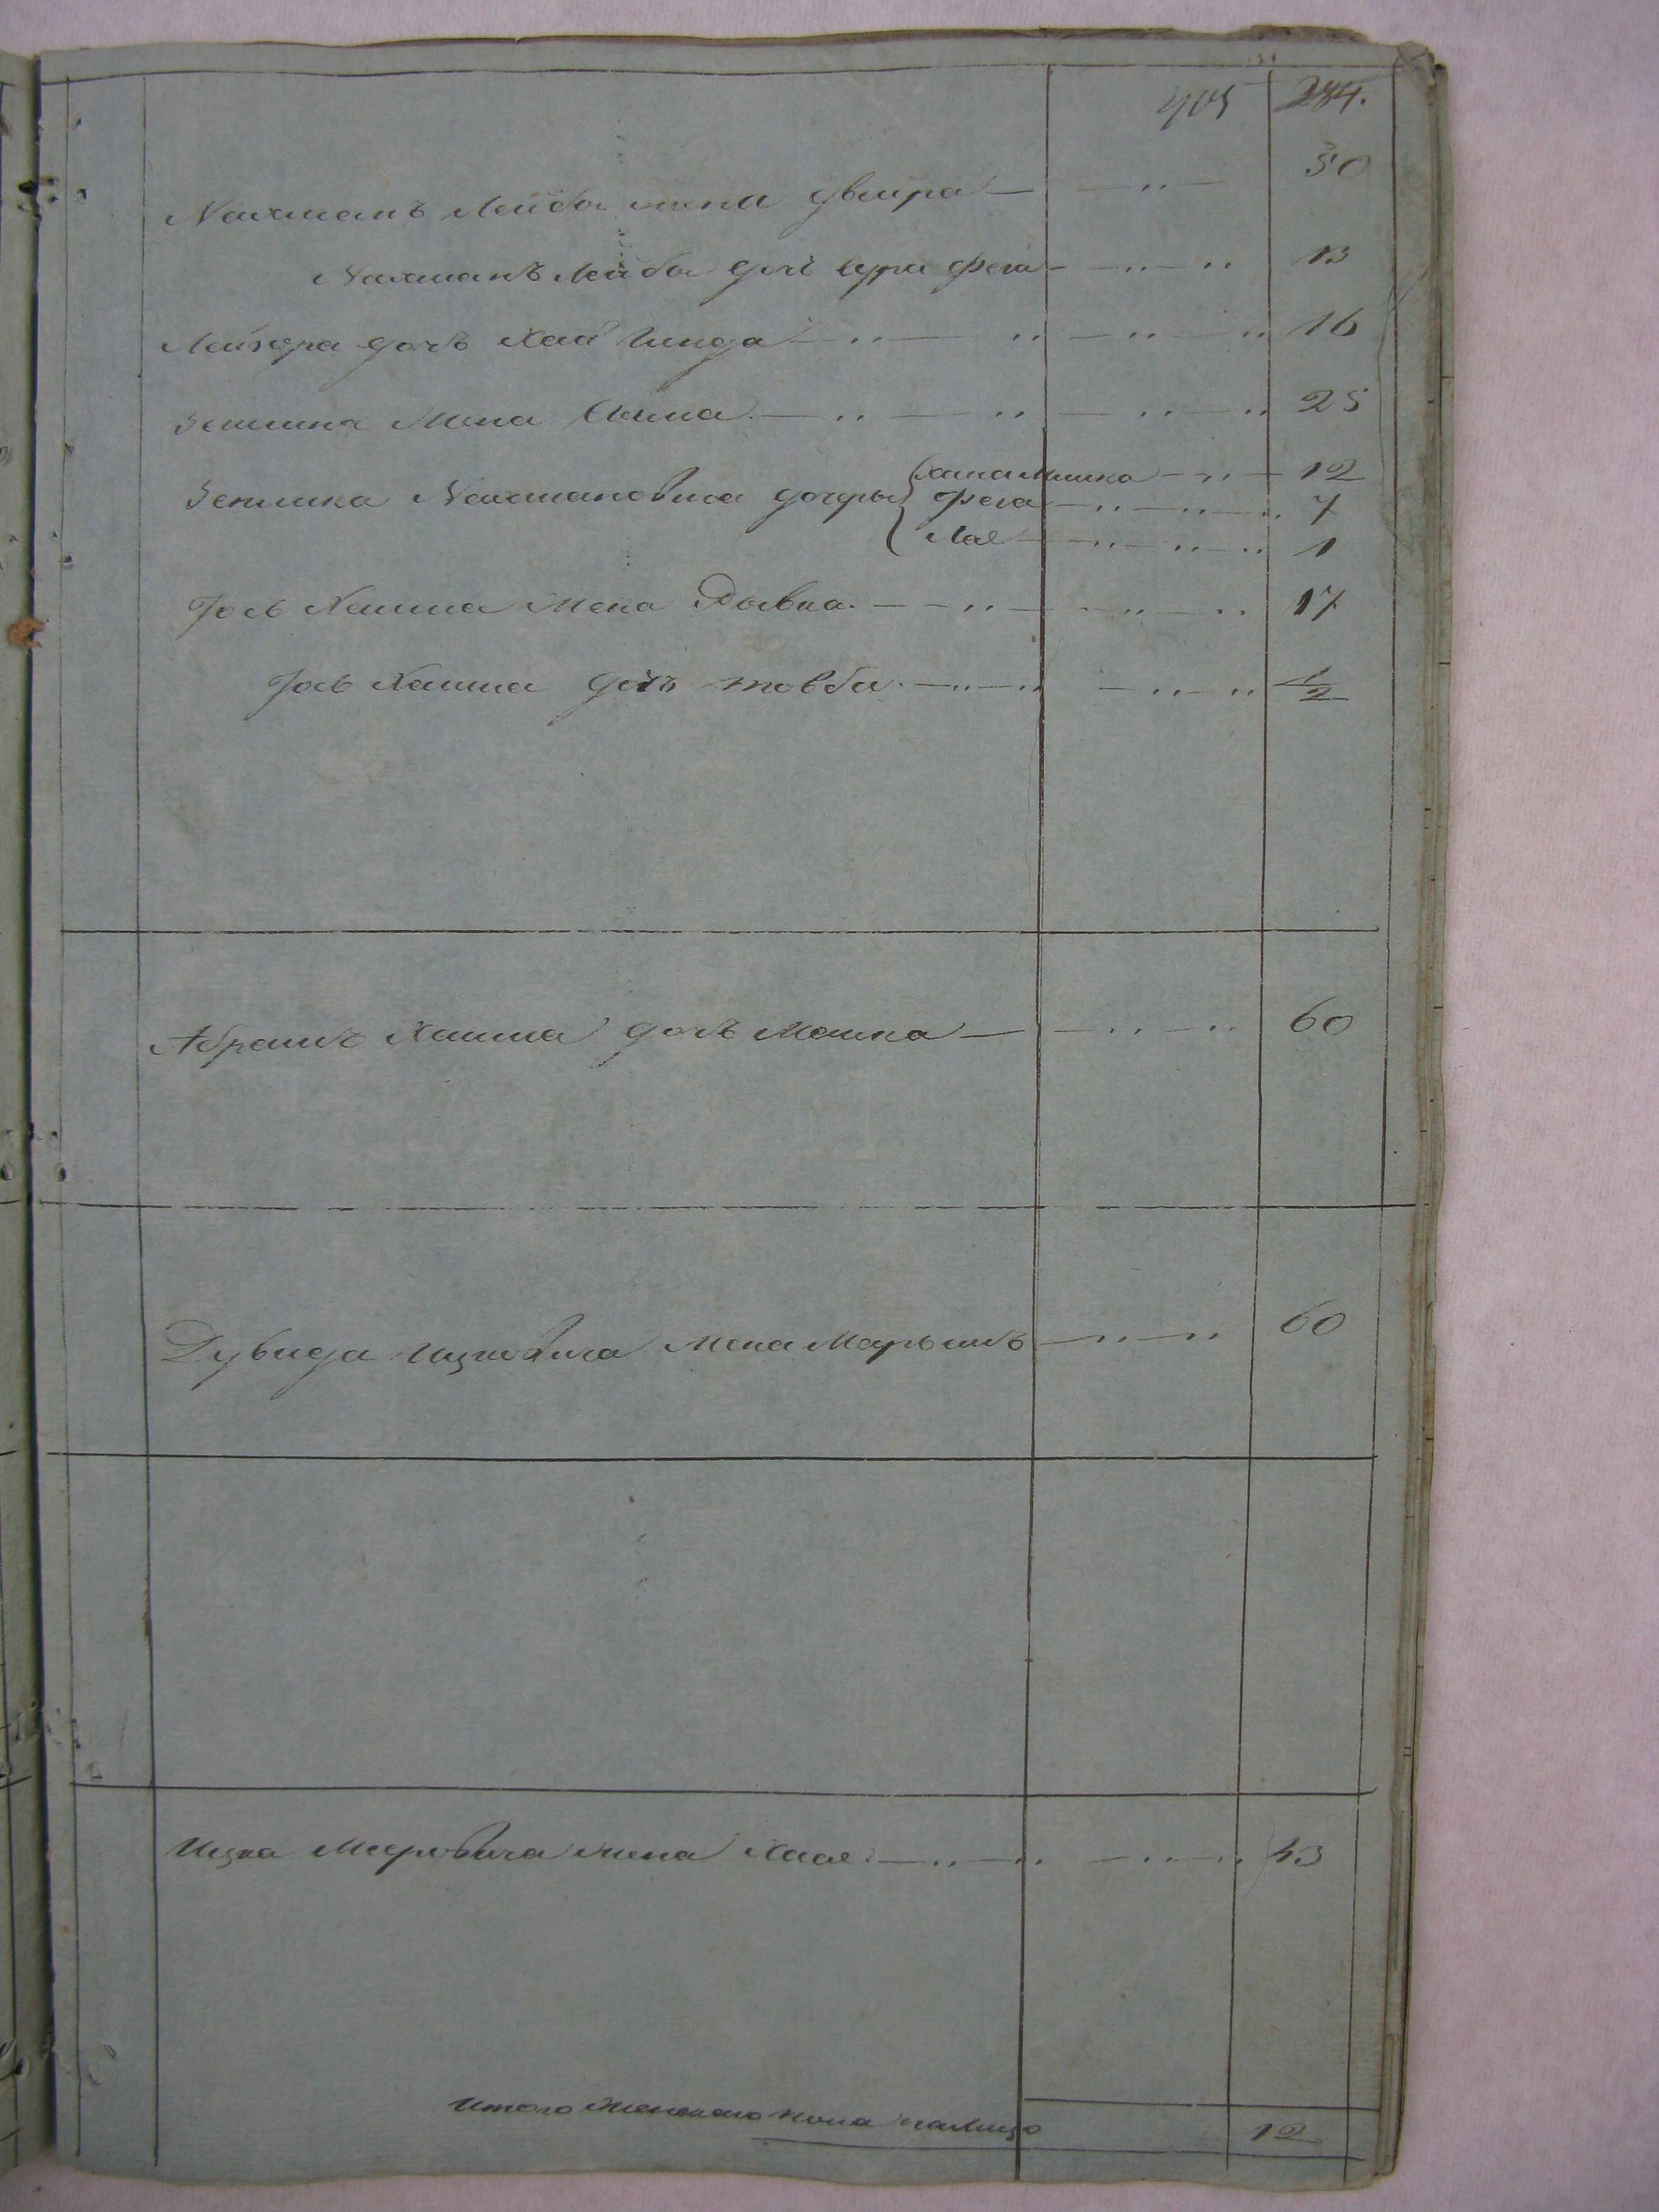 405 284.
Нахманъ Лейба жена Двейра — 50
Нахманъ Лейба дочь Сура Фега — 13
Лейзера дочь Хая Гинда — 16
Зельмана жена Сьима — 25
Зельмана Нахмановича дочеры Хана Минка — 12
Фега — 7
Лае — 1
Іось Хаима жена Рывка. — 17
Іось Хаима дочь товба. — 1/2
Абрамъ Хаима дочь Малка — 60
Дувида Ицковича жена Марьямъ — 60
Ицка Меєровича жена Хае. — 43
Итого Женскаго пола налицо 12